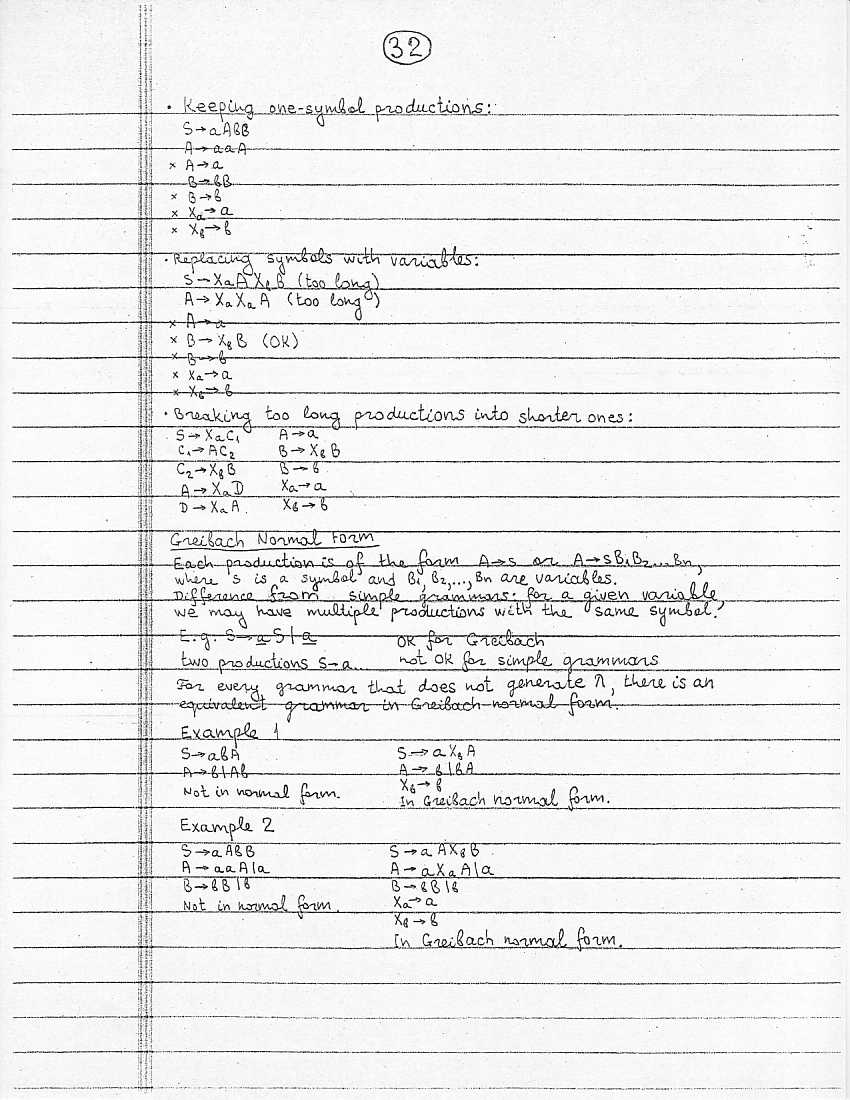 32
· Keeping one-symbol productions:
S→aAbB
A→aaA
× A→a
B→bB
× B→b
× Xa→a
× Xb→b
· Replacing symbols with variables:
S→XaAXbB (too long)
A→XaXaA (too long)
× A→a
× B→XbB (OK)
× B→b
× Xa→a
× Xb→b
· Breaking too long productions into shorter ones:
S→XaC1 A→a
C1→AC2 B→XbB
C2→XbB B→b
A→XaD Xa→a
D→XaA Xb→b
Greibach Normal Form
Each production is of the form A→s or A→sB1B2...Bn,
where s is a symbol and B1, B2,..., Bn are variables.
Difference from simple grammars: for a given variable
we may have multiple productions with the same symbol.
E.g. S→aS|a OK for Greibach
two productions S→a... not OK for simple grammars
For every grammar that does not generate Λ, there is an
equivalent grammar in Greibach normal form.
Example 1
S→abA S→aXbA
A→b|Ab A→b|bA
Xb→b
Not in normal form. In Greibach normal form.
Example 2
S→aAbB S→aAXbB
A→aaA|a A→aXaA|a
B→bB|b B→bB|b
Not in normal form. Xa→a
Xb→b
In Greibach normal form.